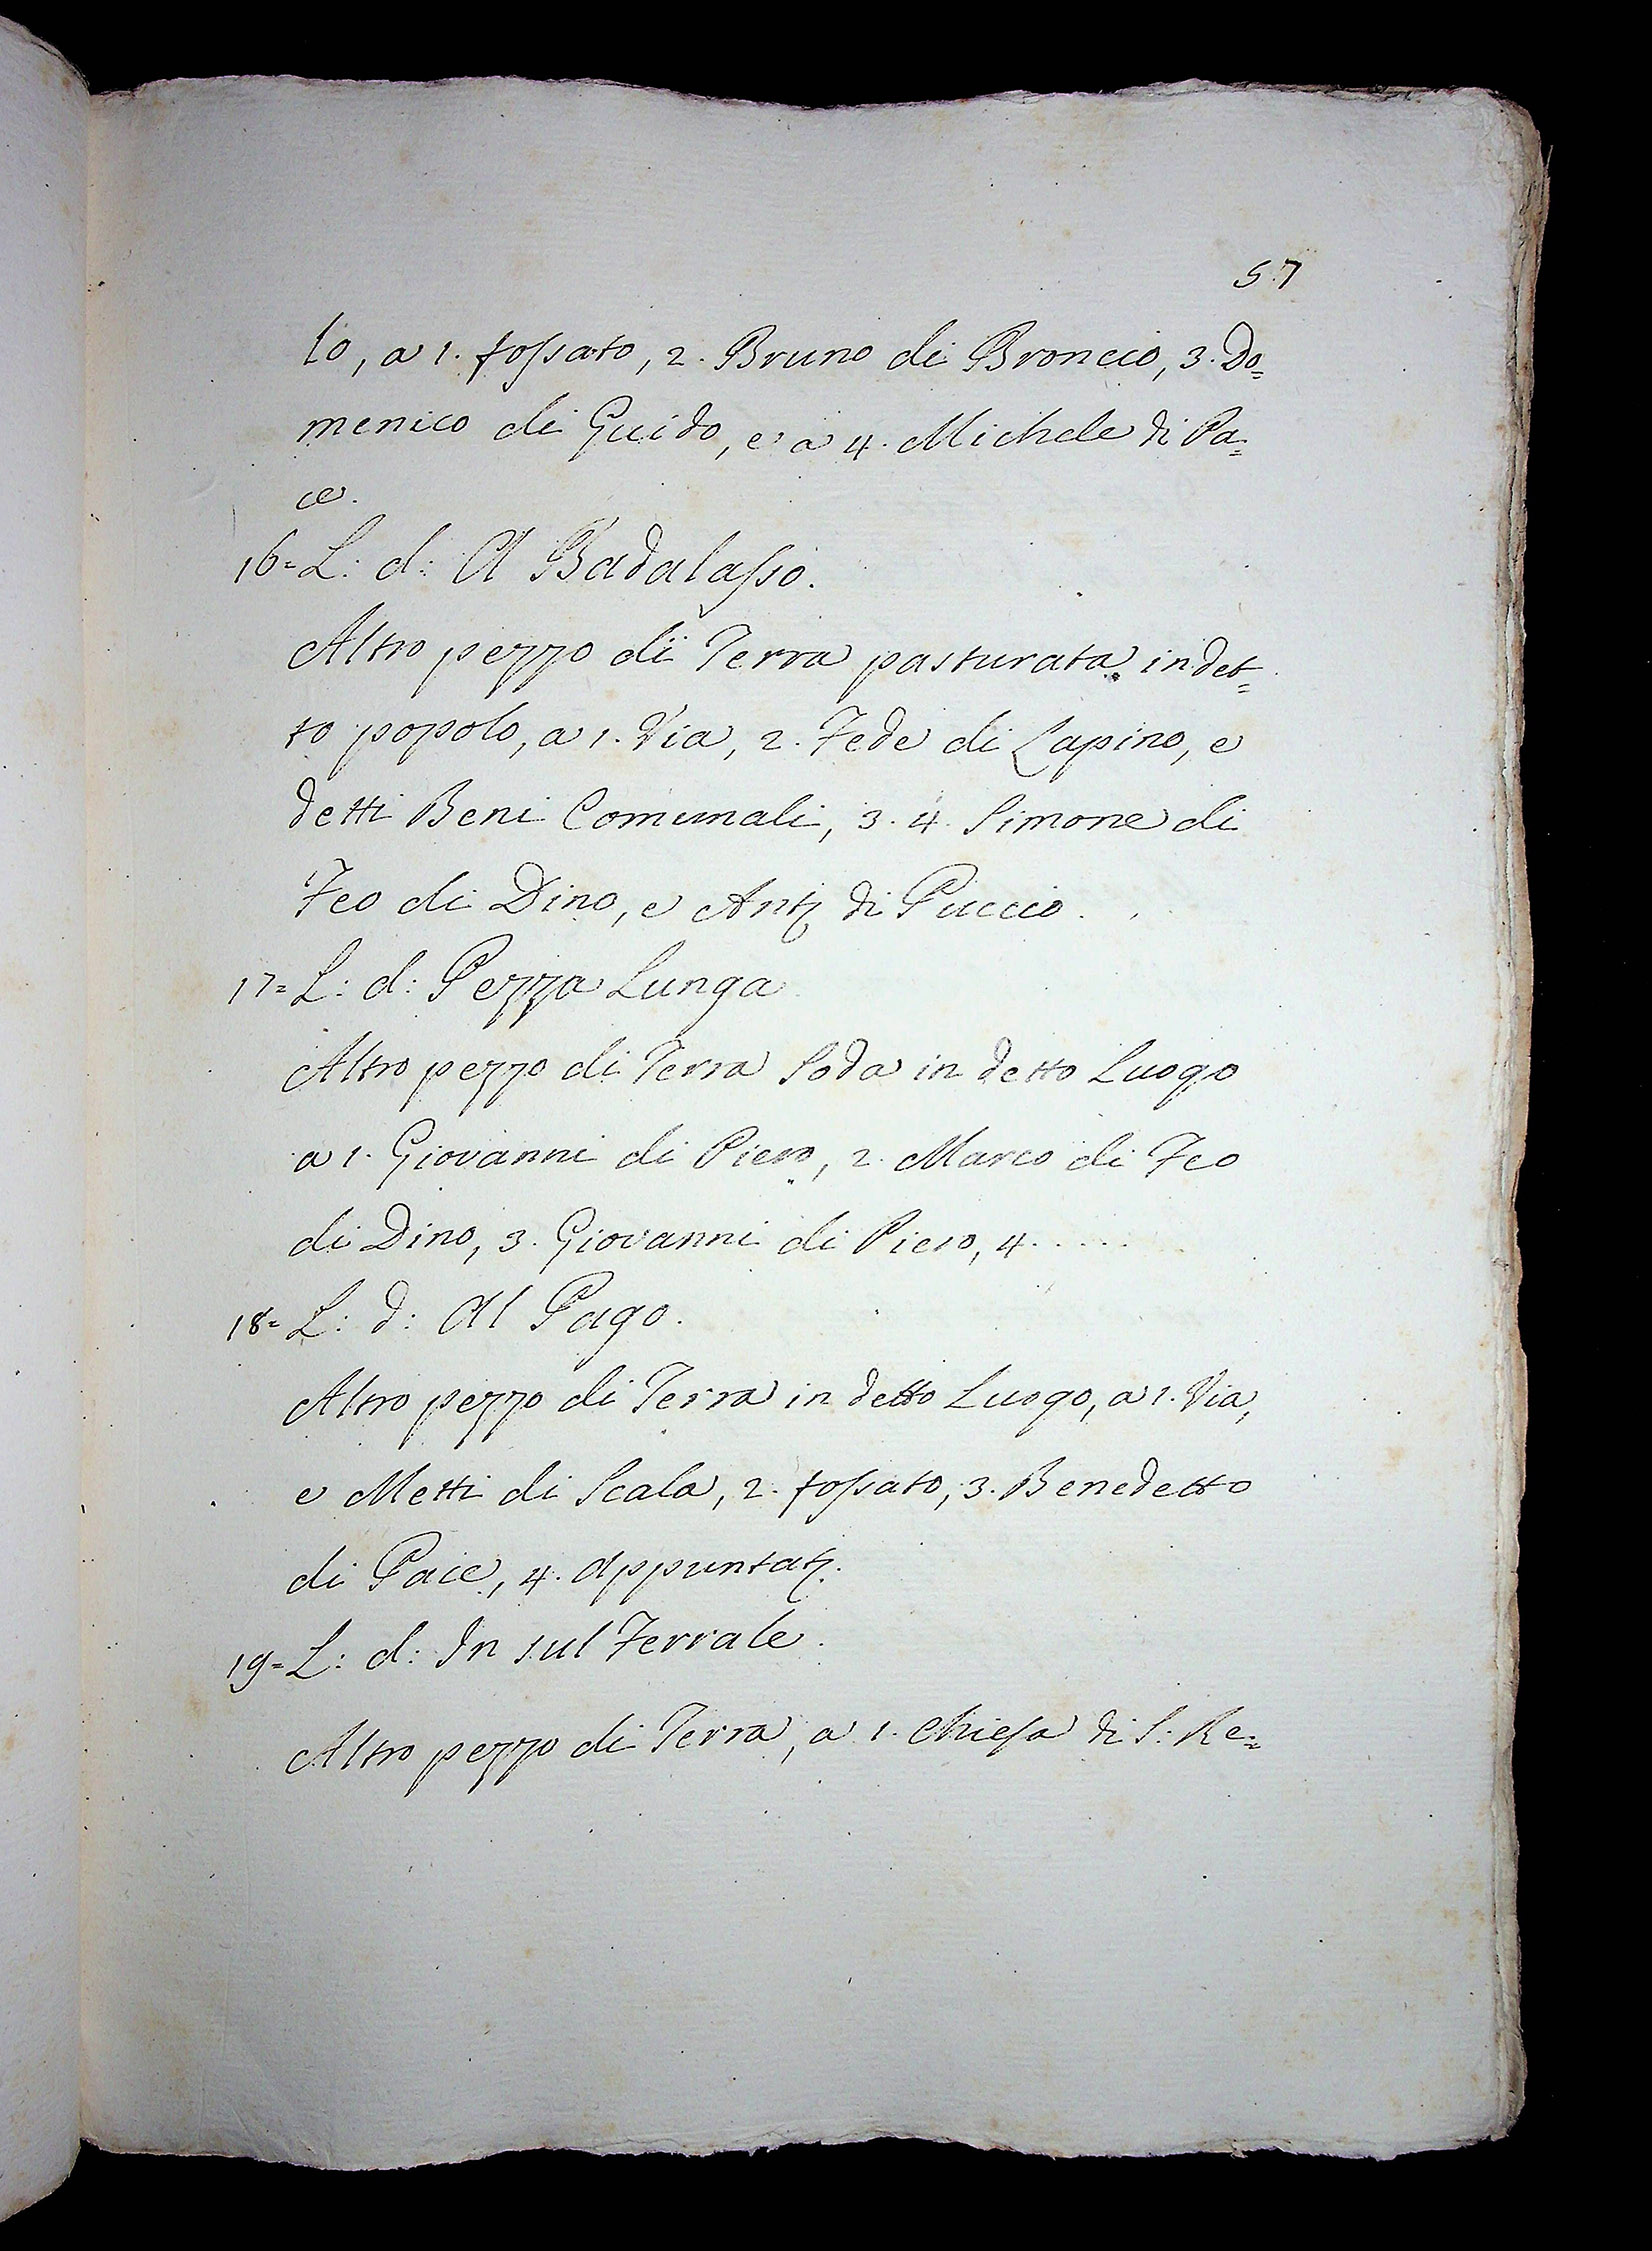 57
lo, a 1. fossato, 2. Bruno di Broncio, 3. Do=
menico di Guido, e a 4. Michele di Pa=
ce.
16= L: d: A Badalasso.
Altro pezzo di Terra pasturata in det=
to popolo, a 1. Via, 2. Fede di Lapino, e
detti Beni Comunali, 3. 4. Simone di
Feo di Dino, e Antº di Puccio.
17= L: d: Pezza Lunga
Altro pezzo di Terra Soda in detto Luogo
a 1. Giovanni di Piero, 2. Marco di Feo
di Dino, 3. Giovanni di Piero, 4. . . . .
18= L: d: Al Pago.
Altro pezzo di Terra in detto Luogo, a 1. Via,
e Metti di Scala, 2. fossato, 3. Benedetto
di Pace, 4. Appuntatº.
19= L: d: In sul Ferrale.
Altro pezzo di Terra, a 1. Chiesa di S: Re=